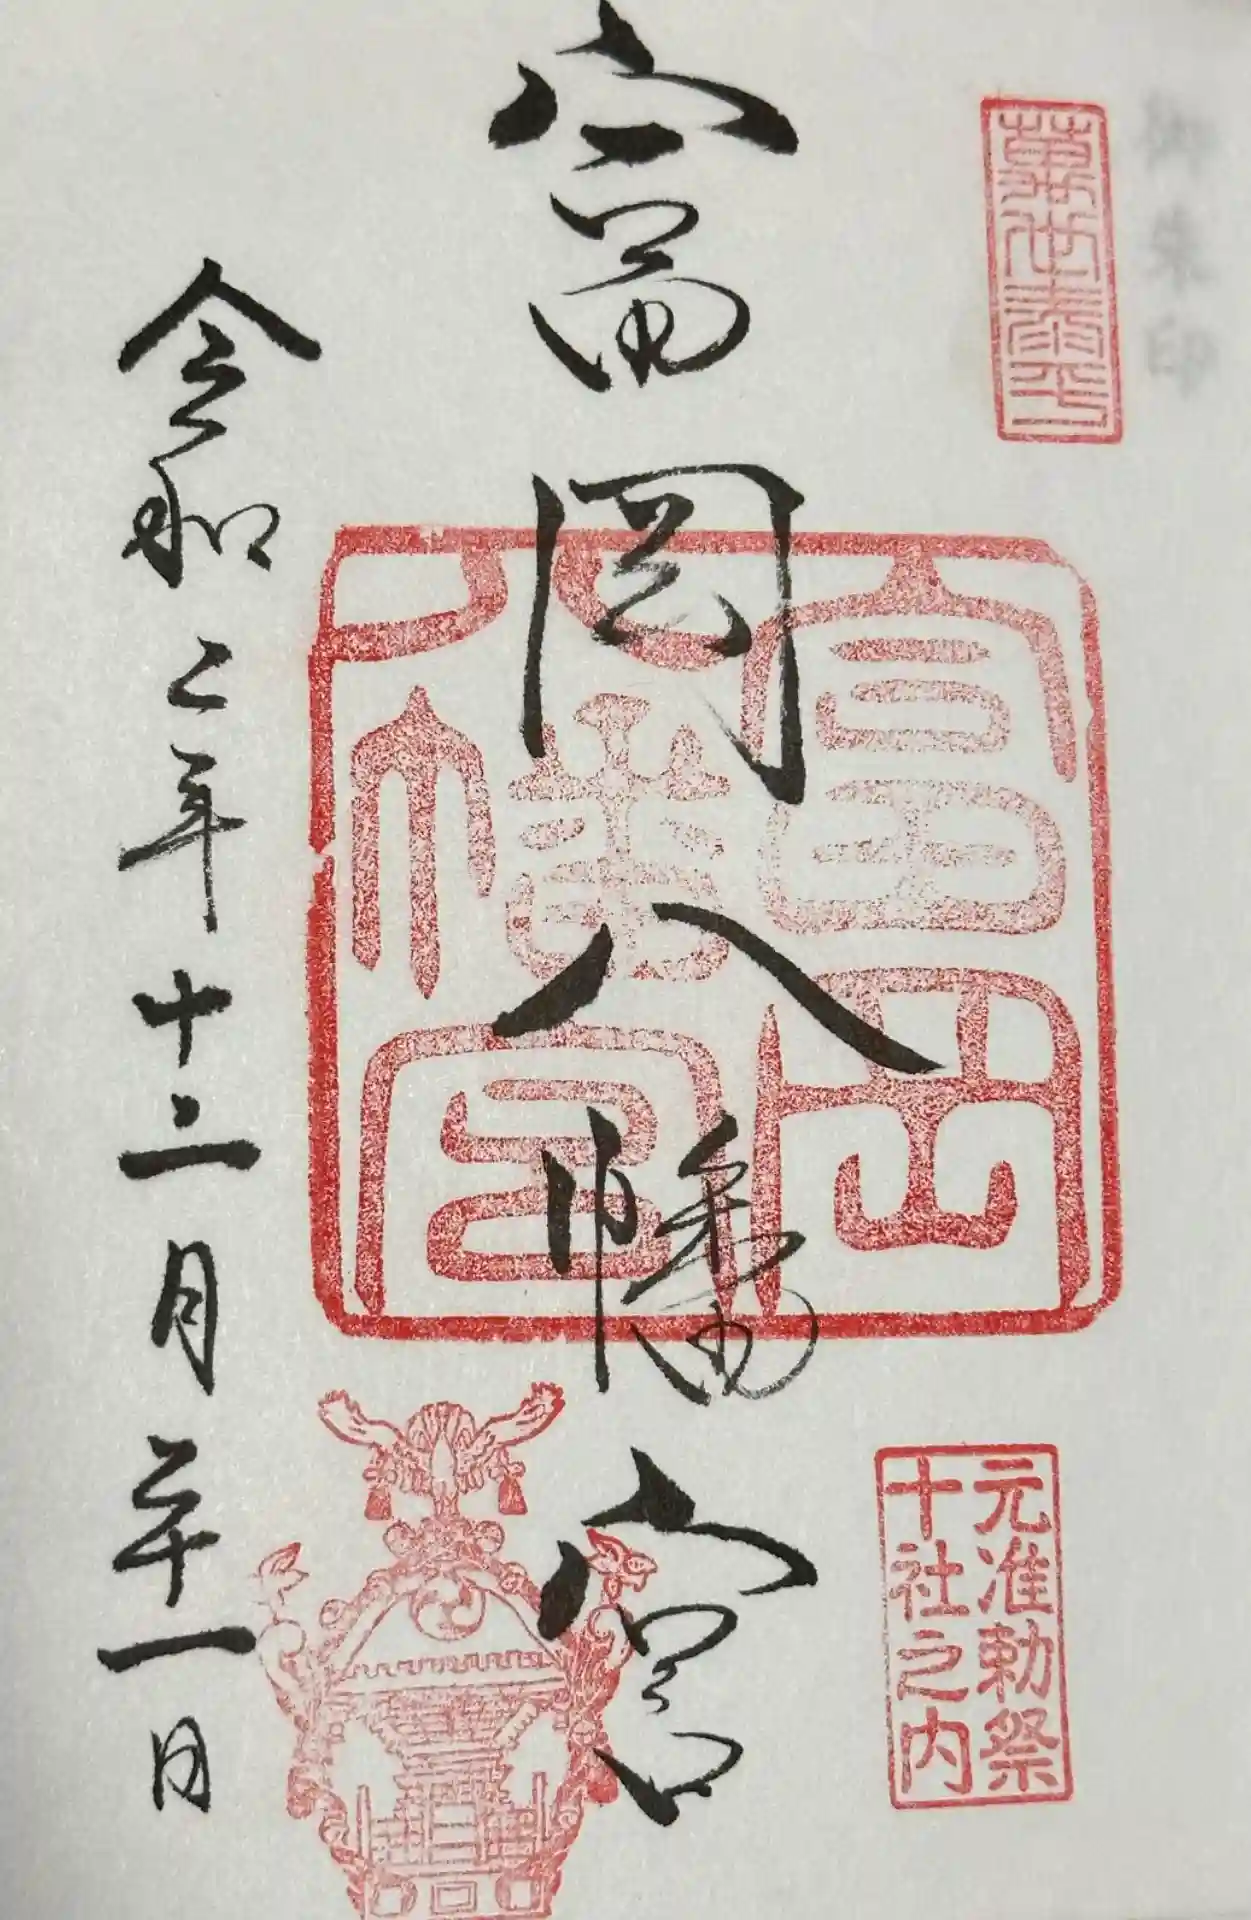 御朱印
萬世泰平
元准勅祭
十社之内
富岡八幡宮
富岡
八幡宮
令和二年十二月二十一日